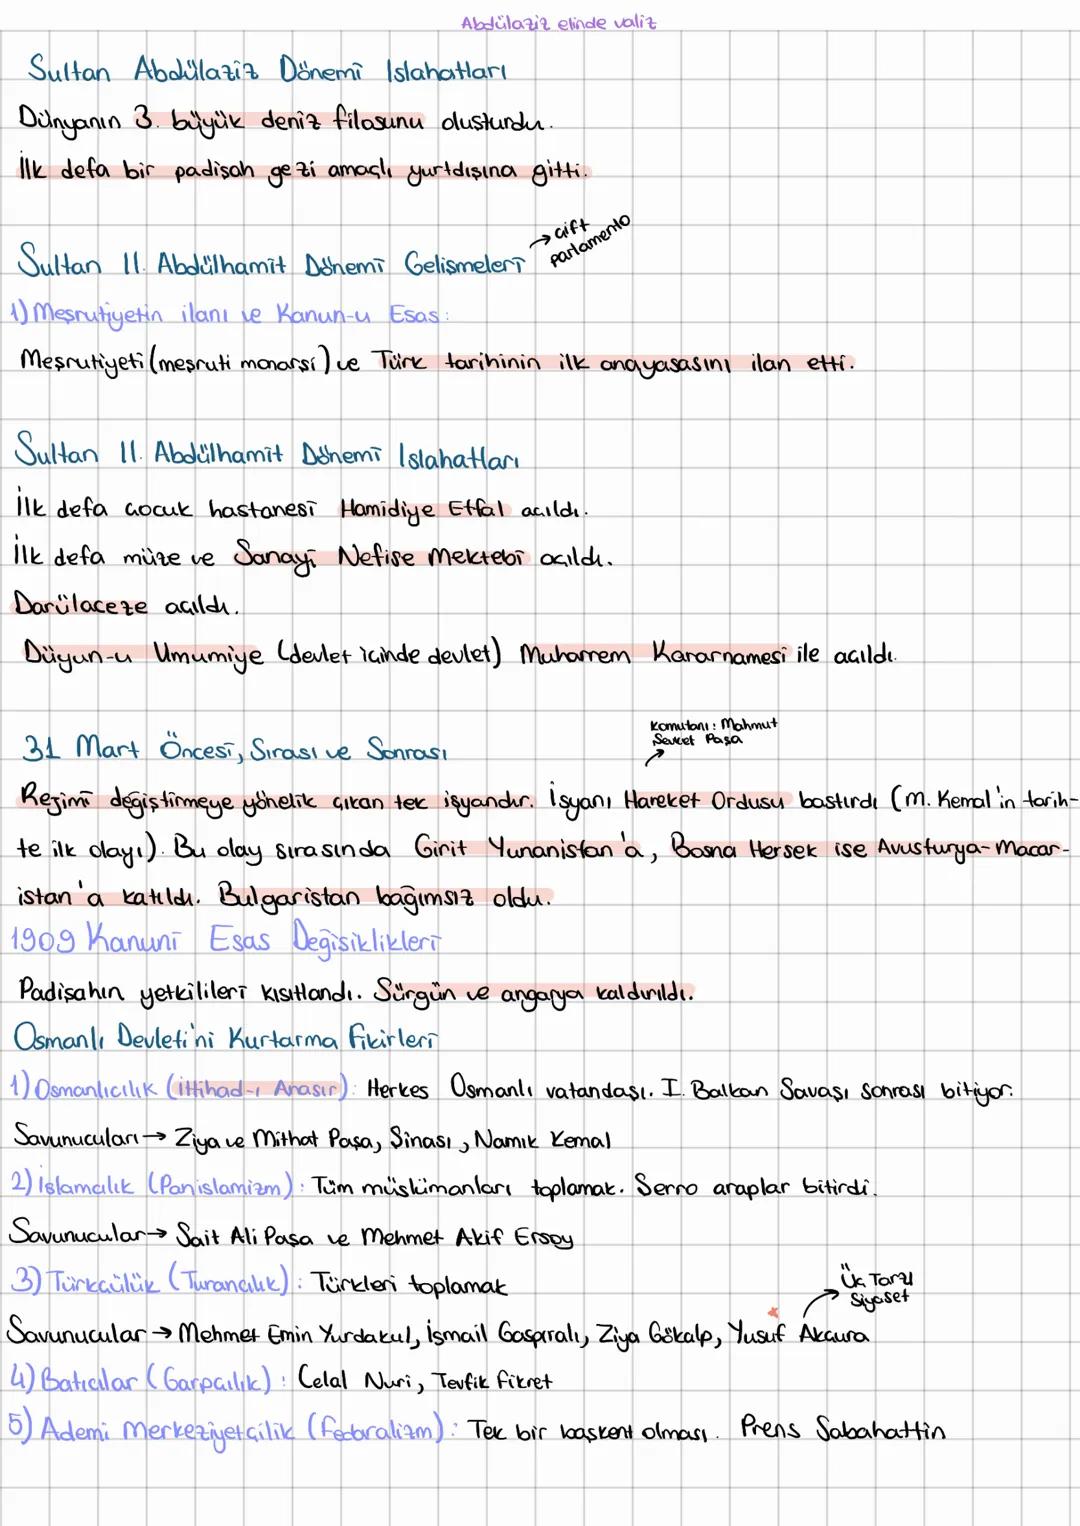 Abdülaziz elinde valiz
Sultan Abdülaziz Dönemi Islahatları
Dünyanın 3. büyük deniz filosunu oluşturdu.
İlk defa bir padişah gezi amaçlı yurtdışına gitti.
→ çift parlamento
Sultan II. Abdülhamit Dönemi Gelişmeleri
1) Meşrutiyetin ilanı ve Kanun-u Esas:
Meşrutiyeti (meşruti monarşi) ve Türk tarihinin ilk anayasasını ilan etti.
Sultan II. Abdülhamit Dönemi Islahatları
İlk defa çocuk hastanesi Hamidiye Etfal açıldı.
İlk defa müze ve Sanayi Nefise Mektebi açıldı.
Darülaceze açıldı.
Düyun-u Umumiye (devlet içinde devlet) Muharrem Kararnamesi ile açıldı.
Komutanı: Mahmut
Şevket Paşa
31 Mart Öncesi, Sırası ve Sonrası
Rejimi değiştirmeye yönelik çıkan tek isyandır. İsyanı Hareket Ordusu bastırdı (M. Kemal'in tarih-
te ilk olayı). Bu olay sırasında Girit Yunanistan'a, Bosna Hersek ise Avusturya-Macar-
istan'a katıldı. Bulgaristan bağımsız oldu.
1909 Kanuni Esas Değişiklikleri
Padişahın yetkilileri kısıtlandı. Sürgün ve angarya kaldırıldı.
Osmanlı Devleti'ni Kurtarma Fikirleri
1) Osmanlıcılık (İttihad-ı Anasır): Herkes Osmanlı vatandaşı. I. Balkan Savaşı sonrası bitiyor.
Savunucuları → Ziya ve Mithat Paşa, Şinasi, Namık Kemal
2) İslamcılık (Panislamizm): Tüm müslümanları toplamak. Serro araplar bitirdi.
Savunucular → Sait Ali Paşa ve Mehmet Akif Ersoy
3) Türkçülük (Turancılık): Türkleri toplamak
Üç Tarzı
Siyaset
Savunucular → Mehmet Emin Yurdakul, İsmail Gaspıralı, Ziya Gökalp, Yusuf Akçura
4) Batıcılar (Garpçılık): Celal Nuri, Tevfik Fikret
5) Ademi Merkeziyetçilik (Federalizm): Tek bir başkent olması. Prens Sabahattin